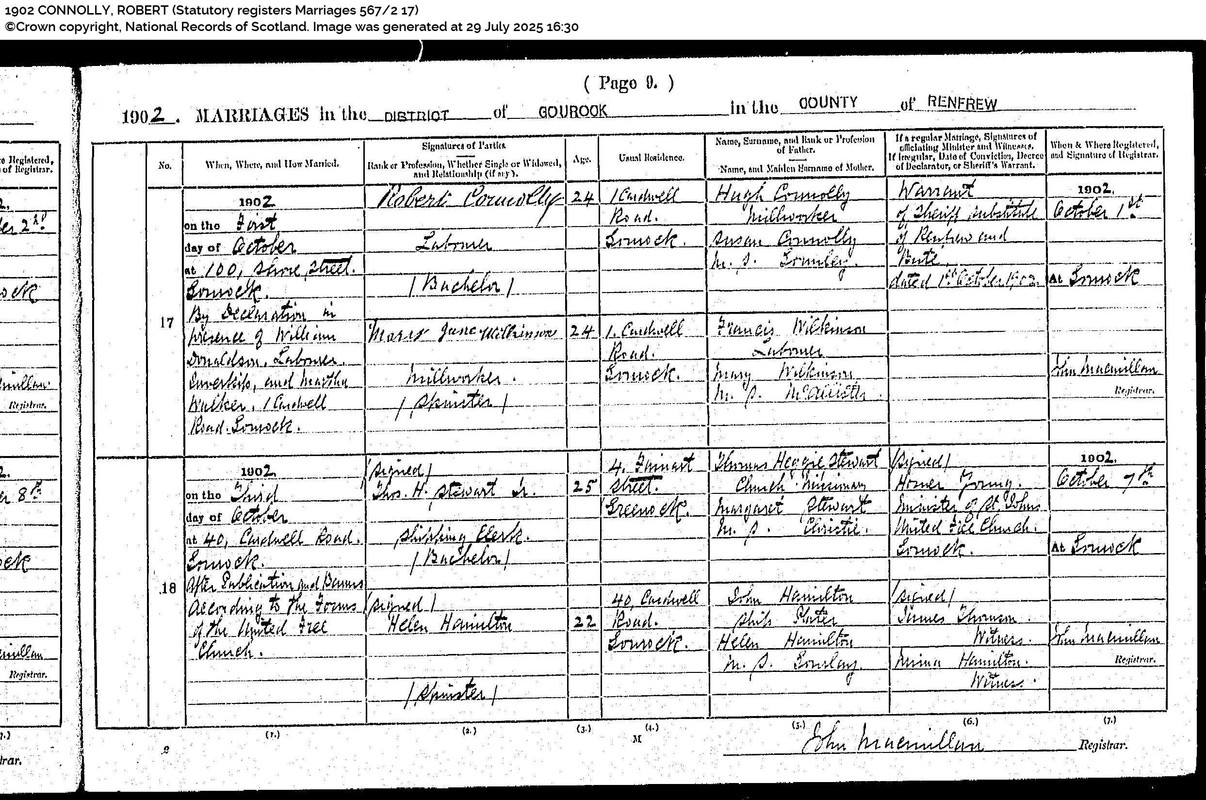 1902 CONNOLLY, ROBERT (Statutory registers Marriages 567/2 17)
©Crown copyright, National Records of Scotland. Image was generated at 29 July 2025 16:30
( Page 9. )
1902. MARRIAGES in the DISTRICT of GOUROCK in the COUNTY of RENFREW
No.
When, Where, and How Married.
Signatures of Parties
Rank or Profession, Whether Single or Widowed,
and Relationship (if any).
Age.
Usual Residence.
Name, Surname, and Rank or Profession
of Father.
Name, and Maiden Surname of Mother.
If a regular Marriage, Signatures of
officiating Minister and Witnesses.
If irregular, Date of Conviction, Decree
of Declarator, or Sheriff's Warrant.
When & Where Registered,
and Signature of Registrar.
17
1902
on the First
day of October
at 100, Shore Street.
Gourock.
By Declaration in
presence of William
Donaldson, Labourer.
Inverkip, and Martha
Walker, 1 Cardwell
Road. Gourock.
Robert Connolly
Labourer
(Bachelor)
Mary Jane Wilkinson
Millworker.
(Spinster)
24
24
1 Cardwell
Road.
Gourock.
1. Cardwell
Road.
Gourock.
Hugh Connolly
Millworker
Susan Connolly
m. s. Gormley.
Francis Wilkinson
Labourer
Mary Wilkinson
m. s. McAllister.
Warrant
of Sheriff Substitute
of Renfrew and
Bute
dated 1st October 1902.
1902.
October 1st
At Gourock
John Macmillan
Registrar.
18
1902.
on the Third
day of October
at 40, Cardwell Road.
Gourock.
After Publication and Banns
According to the Forms
of the United Free
Church.
(signed)
Thos. H. Stewart Jr.
Shipping Clerk
(Bachelor)
(signed)
Helen Hamilton
(Spinster)
25
22
4. Finnart
Street.
Greenock.
40 Cardwell
Road.
Gourock.
Thomas Heggie Stewart
Church Missionary
Margaret Stewart
m. s. Christie.
John Hamilton
Ship Plater
Helen Hamilton
m. s. Gourlay
(signed)
Homer Young.
Minister of St Johns
United Free Church.
Gourock.
(signed)
James Thomson.
Witness.
Minna Hamilton.
Witness.
1902.
October 7th
At Gourock
John Macmillan
Registrar.
(1.) (2.) (3.) (4.) (5.) (6.) (7.)
M
John Macmillan Registrar.